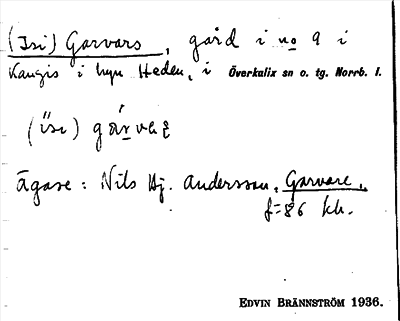 (Isi) Garvars, gård i no 9 i
Kangis i byn Heden, i Överkalix sn o. tg. Norrb. l.
(isi)
Ägare: Nils Hj. Andersson, Garvare,
f=86 kh.
EDVIN BRÄNNSTRÖM 1936.